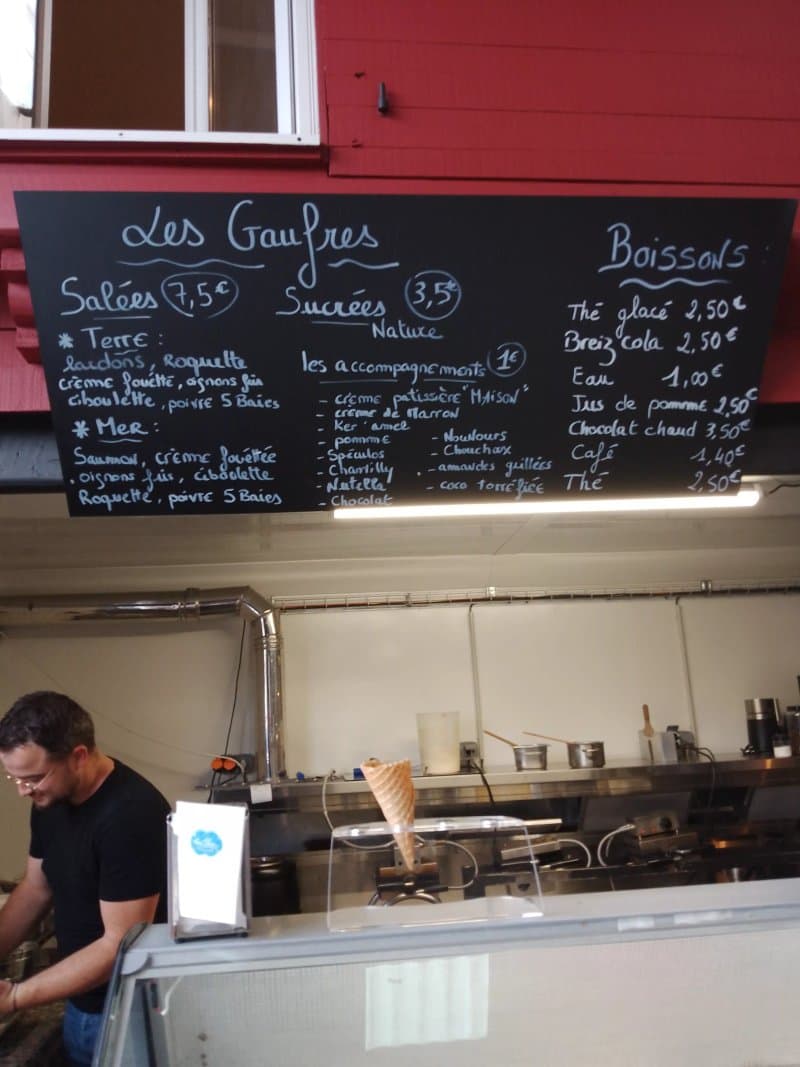 Les Gaufres
Salées 7,5€
* Terre :
lardons, Roquette
crème fouettée, oignons fris
ciboulette, poivre 5 Baies
* Mer :
Saumon, crème fouettée
oignons fris, ciboulette
Roquette, poivre 5 Baies
Sucrées 3,5€
Nature
les accompagnements 1€
- crème patissière "MAISON"
- crème de Marron
- Ker'amel
- pomme
- Spéculos
- Chantilly
- Nutella
- Chocolat
- Nounours
- Chouchoux
- amandes grillées
- coco torréfiée
Boissons
Thé glacé 2,50€
Breiz cola 2,50€
Eau 1,00€
Jus de pomme 2,50€
Chocolat chaud 3,50€
Café 1,40€
Thé 2,50€